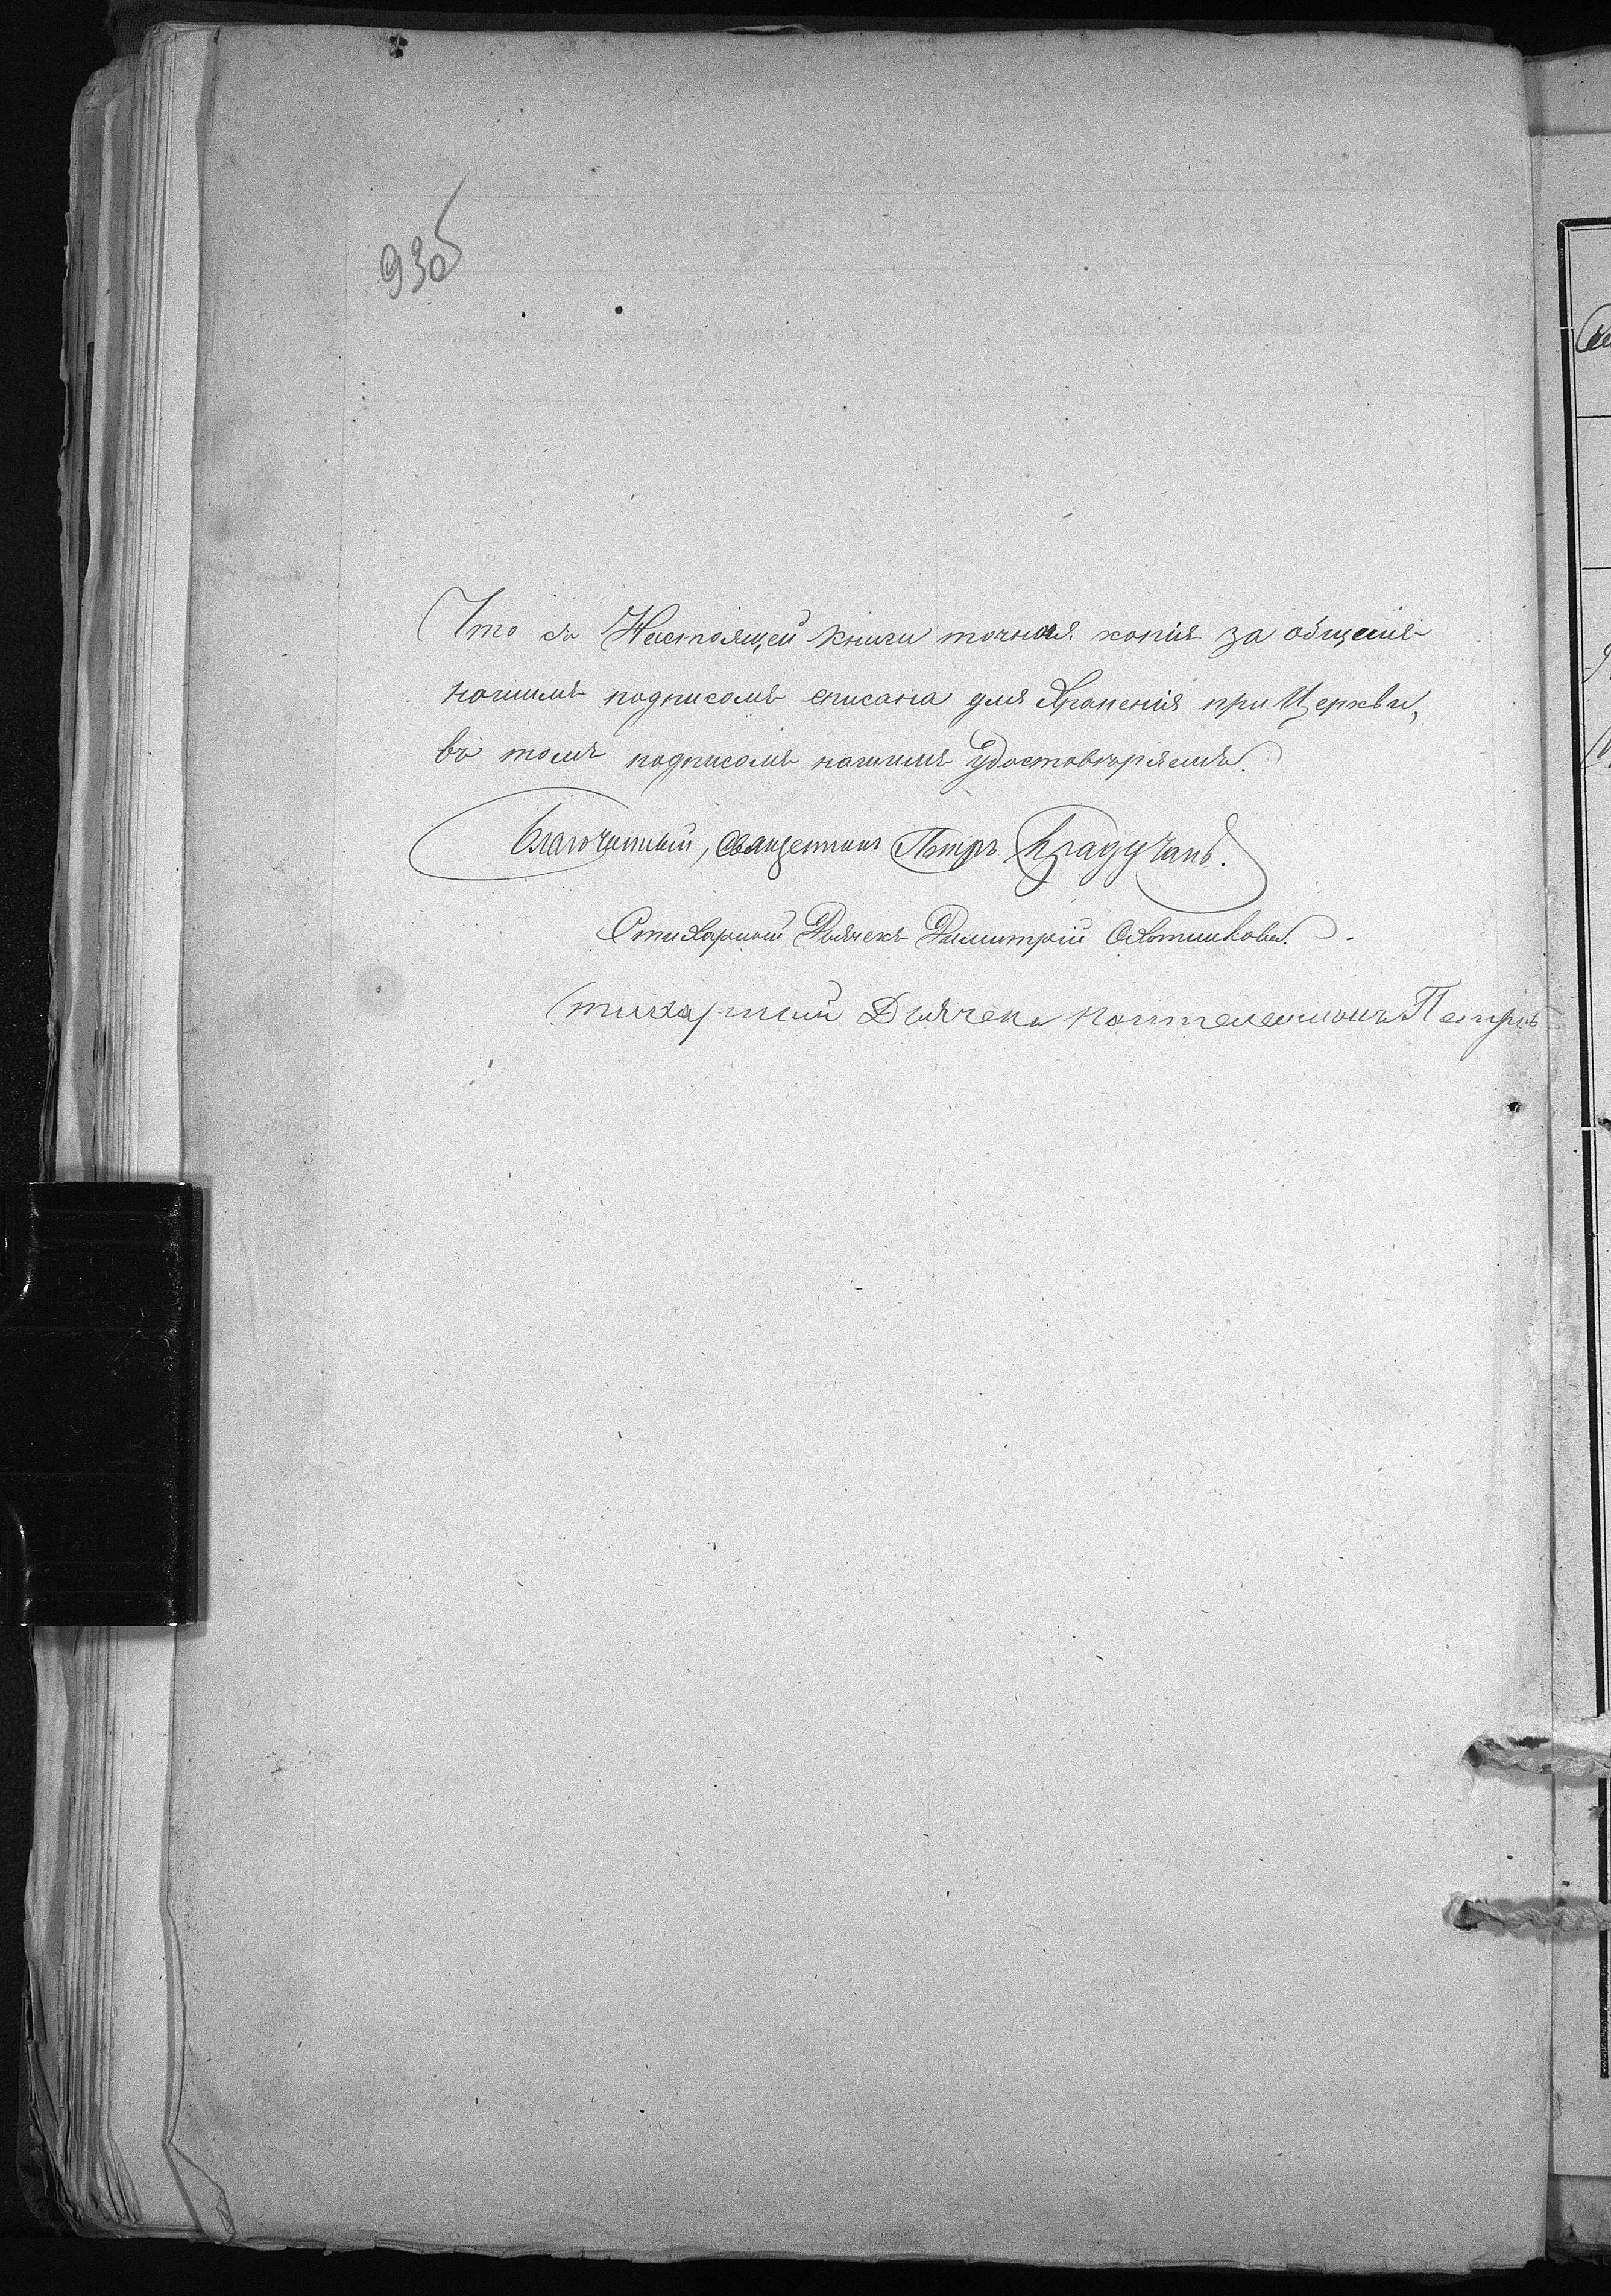 93об
Что съ Настоящей книги точная копія за общимъ
нашимъ подписомъ списана для Храненія при Церкви,
въ томъ подписомъ нашимъ удостовѣряемъ.
Благочинный, священникъ Петръ
Стихарный Дьячекъ Димитрій
Стихарный Дьячекъ Пантелеимонъ